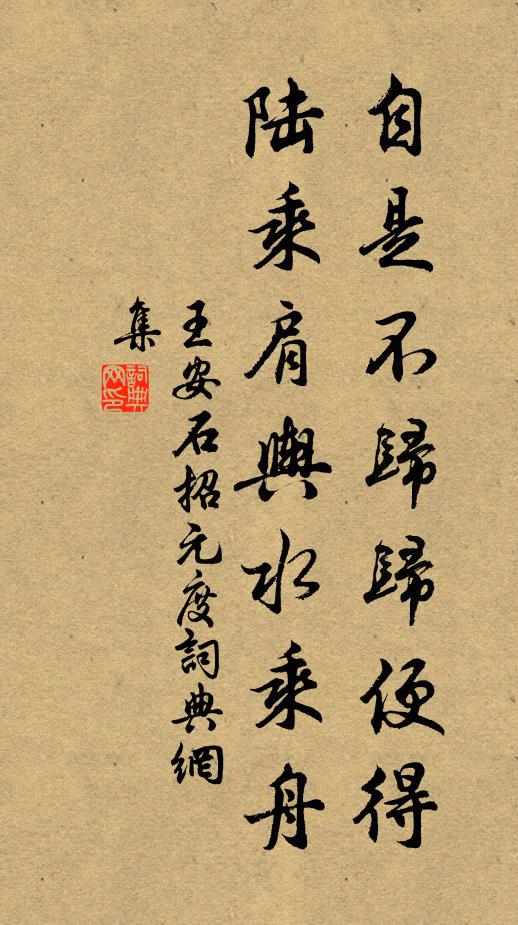 自是不歸歸便得
陸乘肩輿水乘舟
王安石招元度詞典網
集
詞典網印